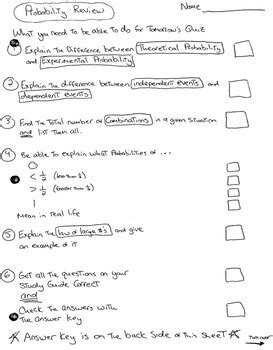 Probability Review
Name
What you need to be able to do for Tomorrow's Quiz
1 Explain the Difference between Theoretical Probability
and Experimental Probability
2 Explain the difference between independent events and
dependent events
3 Find the Total number of Combinations in a given situation
and list them all.
4 Be able to explain what Probabilities of ...
0
< 1/2 (less than 1/2)
> 1/2 (greater than 1/2)
1
Mean in real life
5 Explain the law of large #'s and give
an example of it
6 Get all the questions on your
Study Guide Correct
and
Check the answers with
the answer key
Answer Key is on the back Side of this sheet